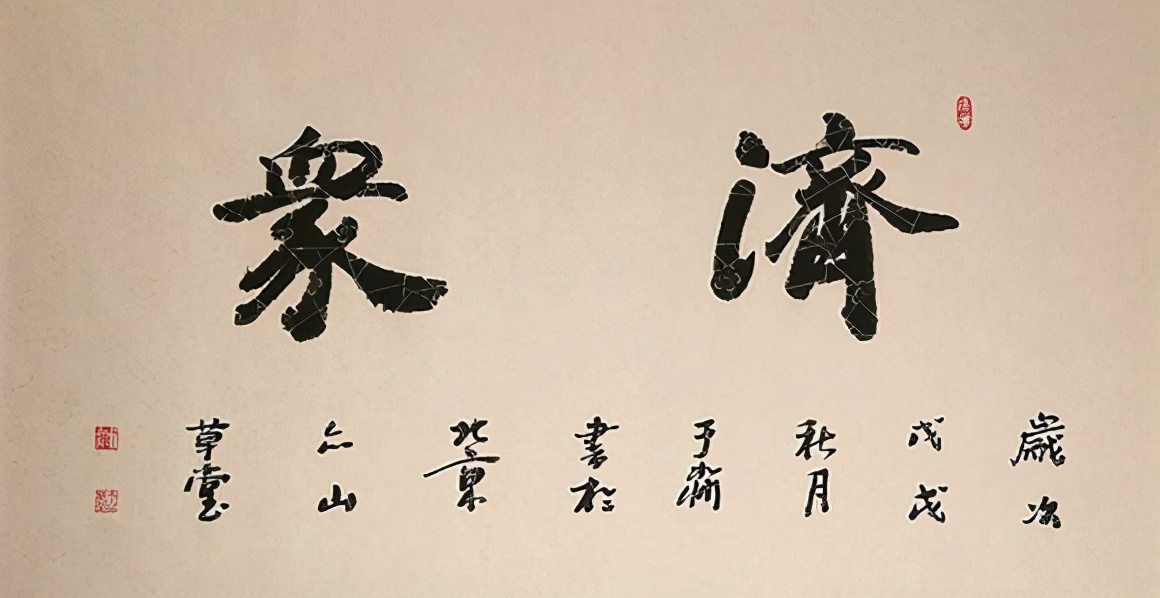 濟衆
歲次
戊戌
秋月
書於
北京
山
草堂